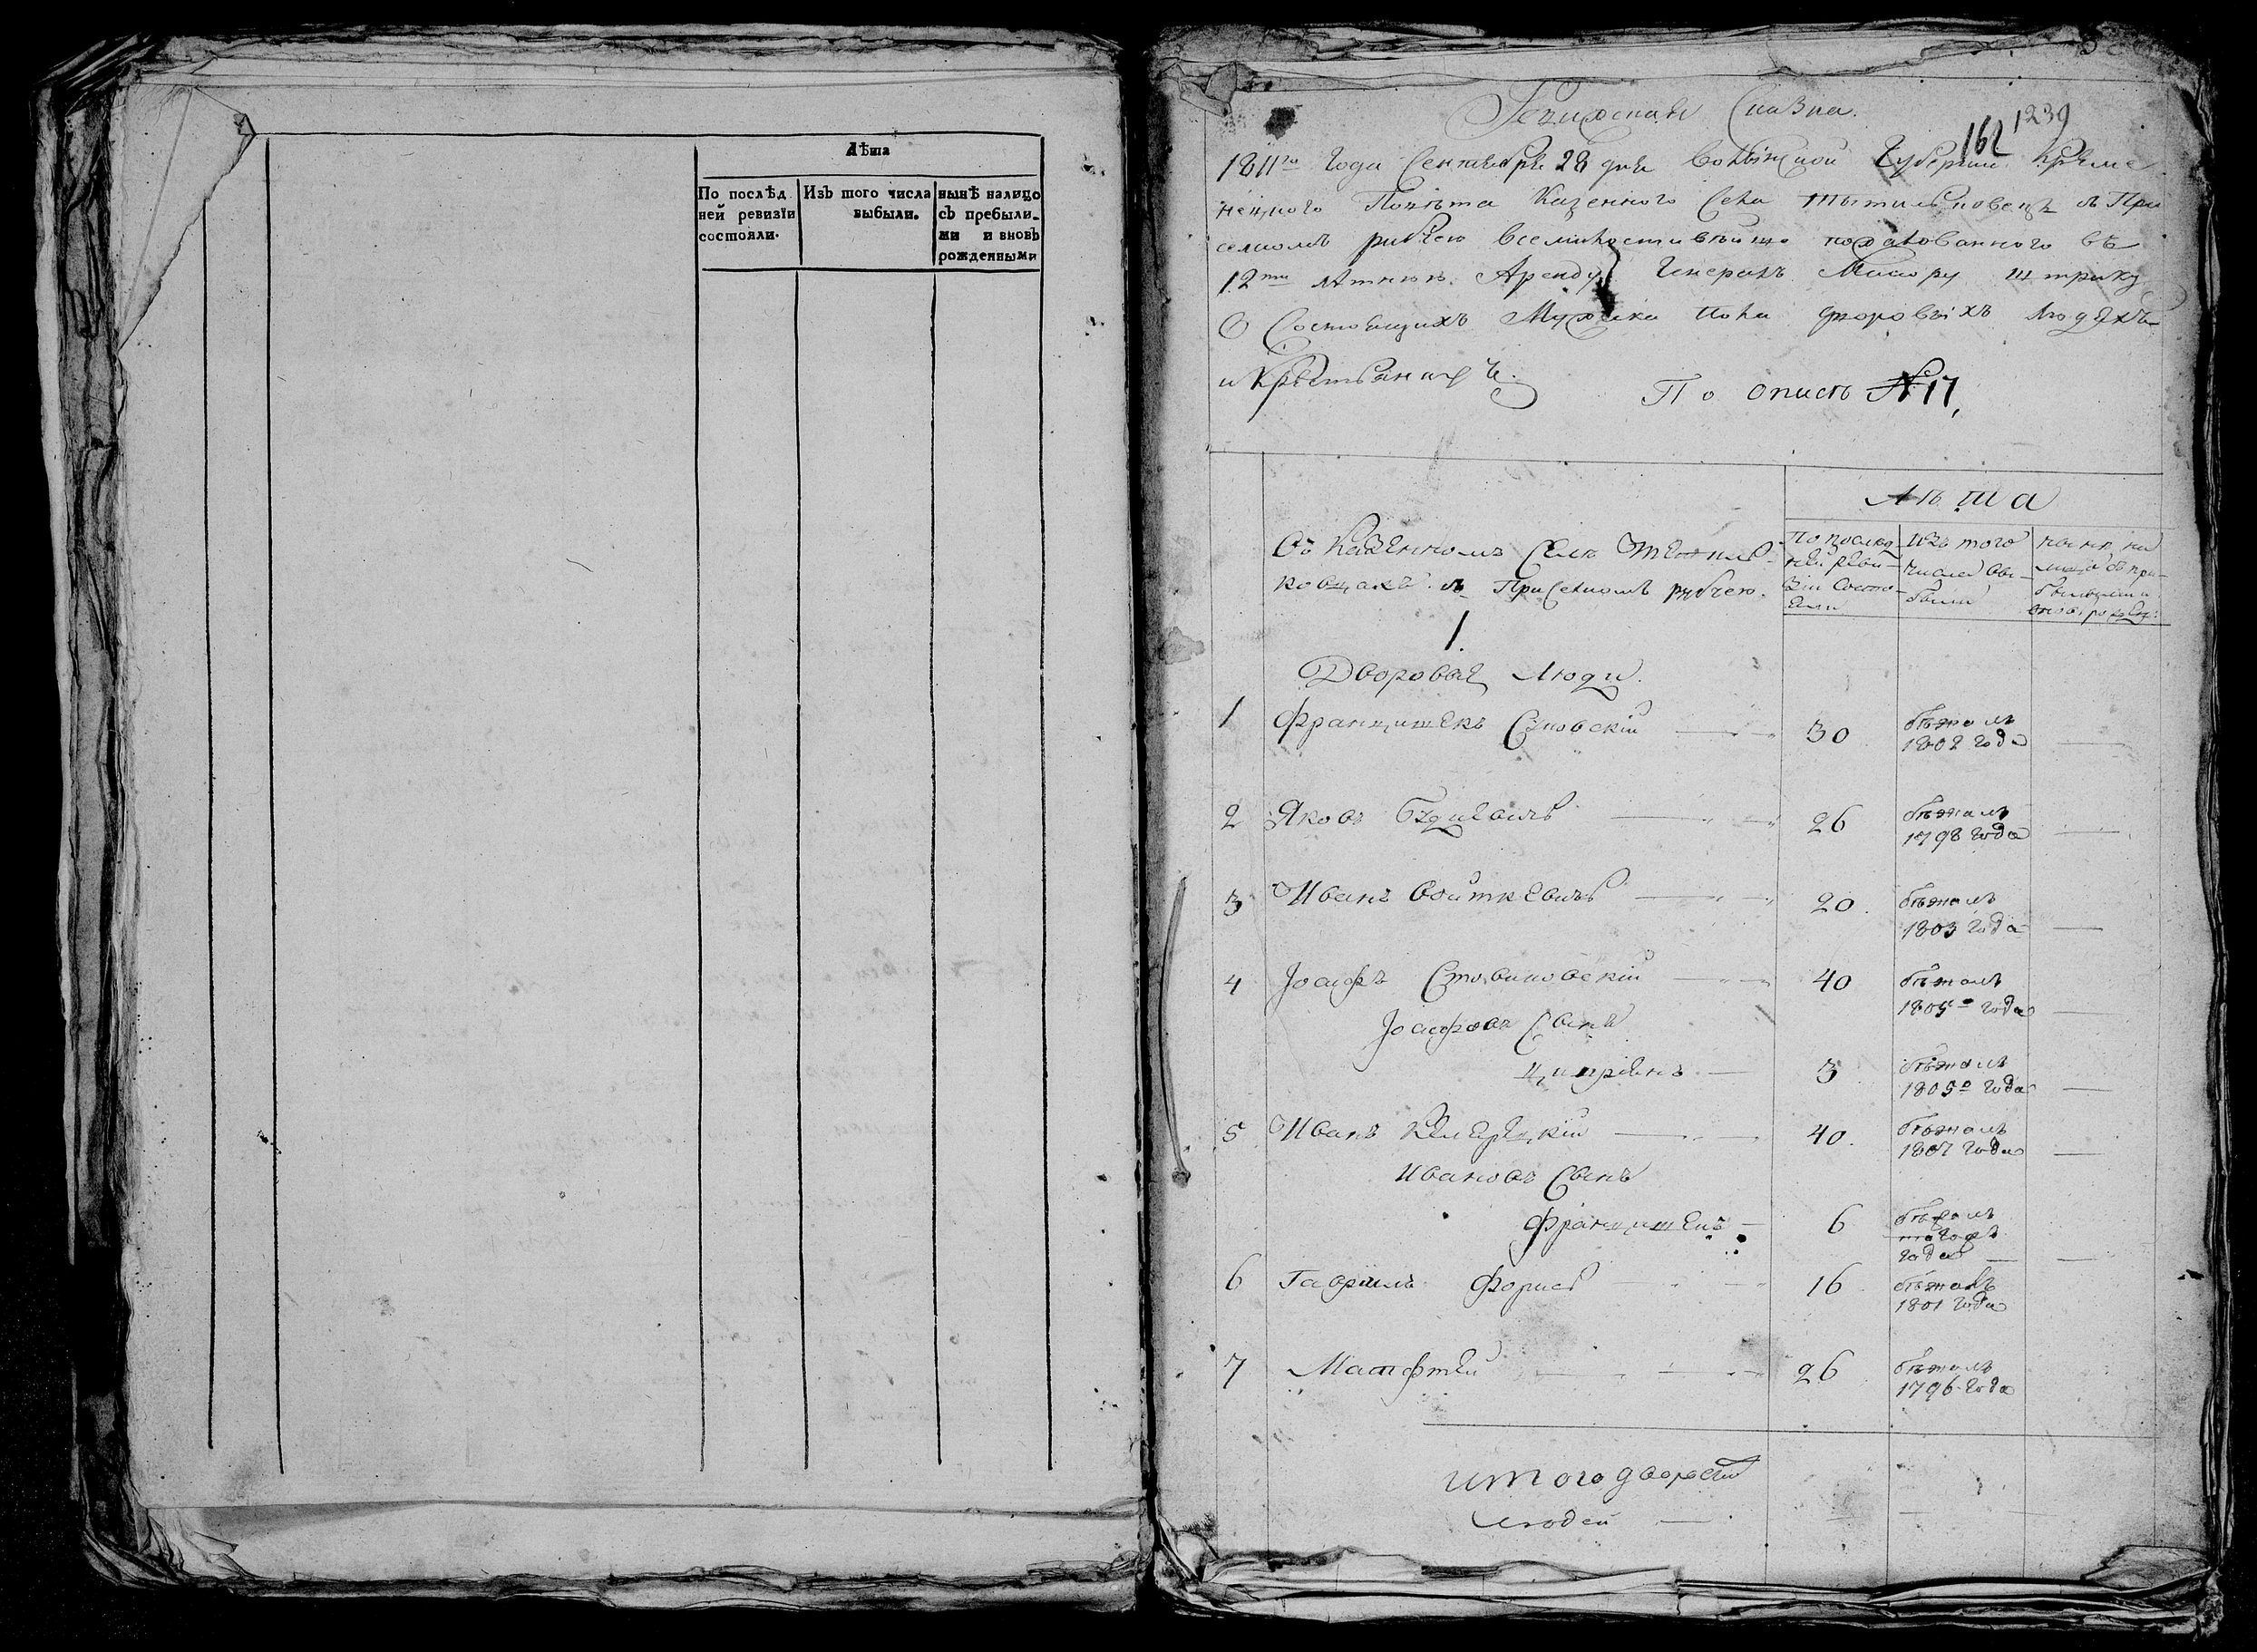 Лѣта
По послѣд
ней ревизїи
состояли.
Изъ того числа
выбыли.
нынѣ налицо
съ пребыли-
ми и вновь
рожденными
Ревижская Сказка.
1239
162
1811го Года Сентября 28 дня Волынской Губернии Креме
нецкого Повѣта Казенного Села съ При
селкомъ всемилостивѣйше пожалованного въ
12ти лѣтнюю Аренду Генералъ Маиору
О Состоящихъ Мужеска пола дворовыхъ людяхъ
и Крестьянахъ.
По описѣ № 17,
Лѣта
Въ Казенномъ Селѣ
ковцахъ съ Приселкомъ
По послѣд
ней реви-
зіи состо-
яли
Изъ того
числа вы-
были
нынѣ на
лицо съ при-
былыми и
вновь рожд:
1.
Дворовая люди.
1 Францишекъ 30 бѣжалъ
1802 года
2 Яковъ 26 бѣжалъ
1798 года
3 Иванъ Войткевичь 20. бѣжалъ
1803 года
4 Іосифъ 40 бѣжалъ
1805го года
Іосифовъ Сынъ
Ципріянъ 3 бѣжалъ
1805го года
5 Иванъ 40. бѣжалъ
1807 года
Ивановъ Сынъ
Францишекъ 6 бѣжалъ
того жъ
года
6 Гаврилъ 16 бѣжалъ
1801 года
7 Матфтей 26 бѣжалъ
1796 года
итого дворовыхъ
людей